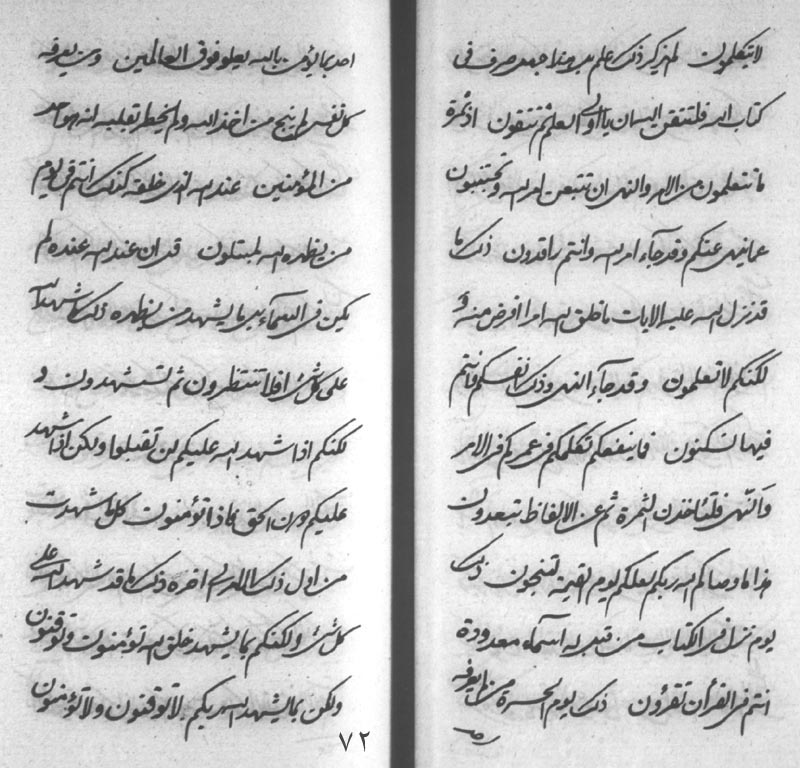 لا تتكلمون لم يزكر ذلك علم بين هذا جمعه صرف في
كتاب الله فلتنقن اللسان يا أولي العلم ثم تتقون اذ ثمرة
ما تتعلمون من الامر والنهي ان تتبعن امر الله وتجتنبون
عما نهى عنكم وقد جآء امر الله وانتم راقدون ذلك ما
قد نزل الله عليه الايات ما خلق الله امرا افرض منه و
لكنكم لا تعلمون وقد جآء النهى وذلك انفسكم فانتم
فيها تسكنون فما ينفعكم تكلمكم في عمركم في الامر
والنهى فلتاخذن الثمرة ثم عن الالفاظ تبعدون
هذا ما وصاكم الله ربكم لعلكم يوم القيمة لتنجون ذلك
يوم نزل في الكتاب من قبل به اسماء معدودة
انتم في القرآن تقرؤن ذلك يوم الحسرة من يعرفه
احد بما يؤمن بالله يعلو فوق العالمين ومن يعرفه
كل نفس لم ينج من اخذ الله ولم يخطر بقلبه انه هو احد
من المؤمنين عند الله الذي خلقه كذلك انتم في يوم
من يظهره الله لمبتلون قد ان عند الله عنده لم
يكن في السمآء بين ما يشهد من يظهره ذلك ما شهد الله
على كل شئ افلا تنتظرون ثم تشهدون و
لكنكم اذا شهد الله عليكم لن تقبلوا ولكن اذا شهد
عليكم دون الحق بماذا تؤمنون كل ما شهدت
من اول ذلك الامر الى اخره ذلك ما قد شهد الله على
كل شئ ولكنكم بما يشهد خلق الله تؤمنون وتوقنون
ولكن بما يشهد الله ربكم لا توقنون ولا تؤمنون
٧٢